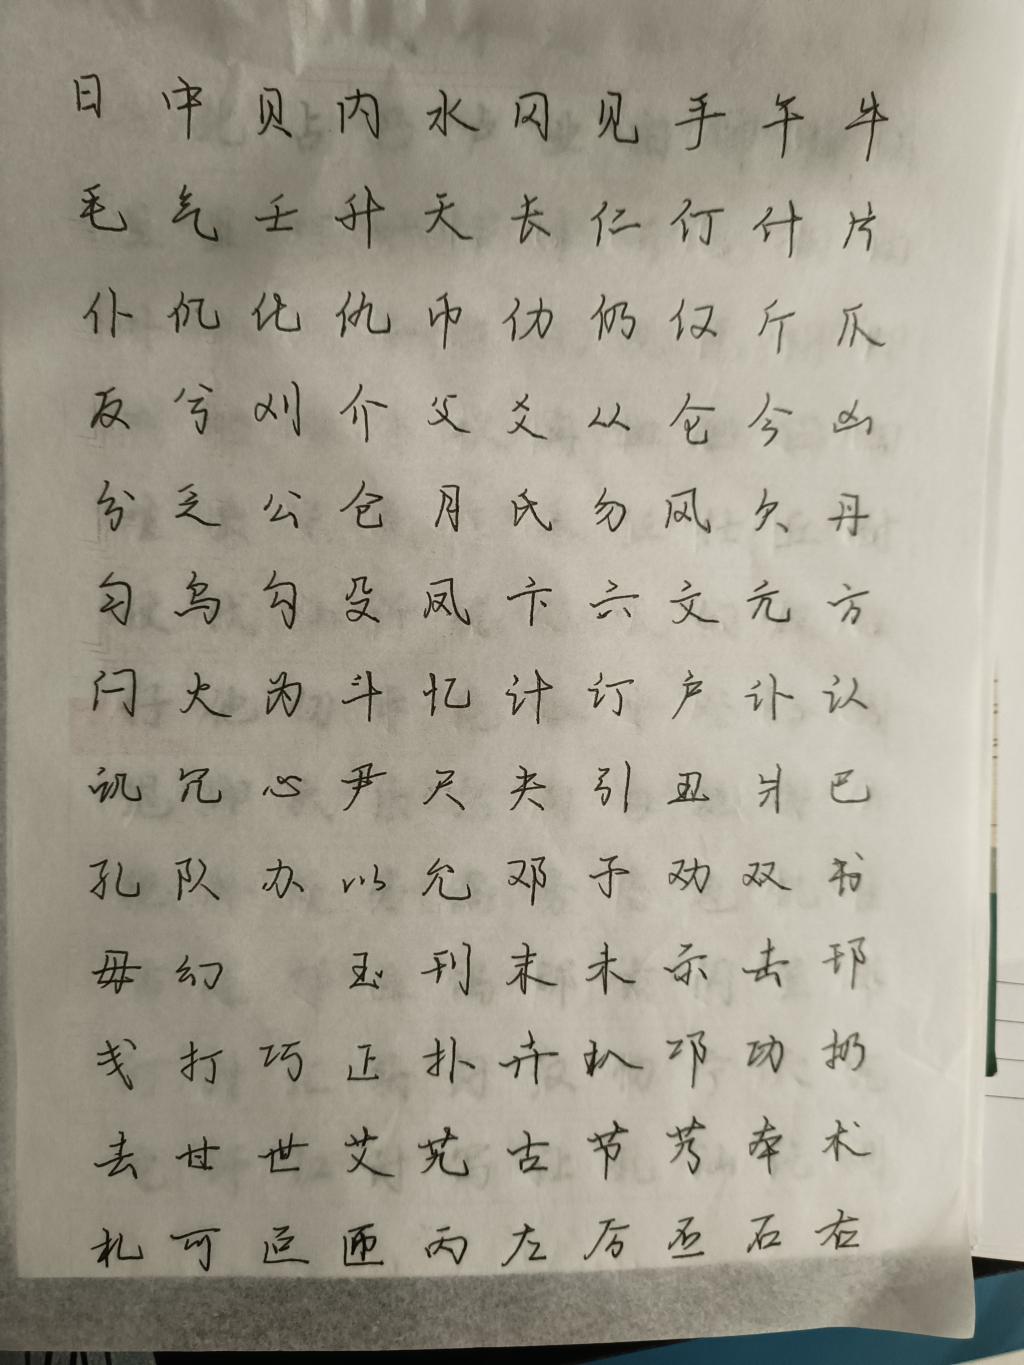 日 中 贝 内 水 冈 见 手 午 牛
毛 气 壬 升 夭 长 仁 仃 什 片
仆 仉 化 仇 币 仂 仍 仅 斤 爪
反 兮 刈 介 父 爻 从 仑 今 凶
分 乏 公 仓 月 氏 勿 风 欠 丹
匀 乌 勾 殳 凤 卞 六 文 亢 方
闩 火 为 斗 忆 计 订 户 讣 认
讥 冗 心 尹 尺 夬 引 丑 爿 巴
孔 队 办 以 允 邓 予 劝 双 书
毋 幻 玉 刊 末 未 示 击 邗
戋 打 巧 正 扑 卉 扒 邛 功 扔
去 甘 世 艾 艽 古 节 艿 本 术
札 可 叵 匝 丙 左 厉 丕 石 右